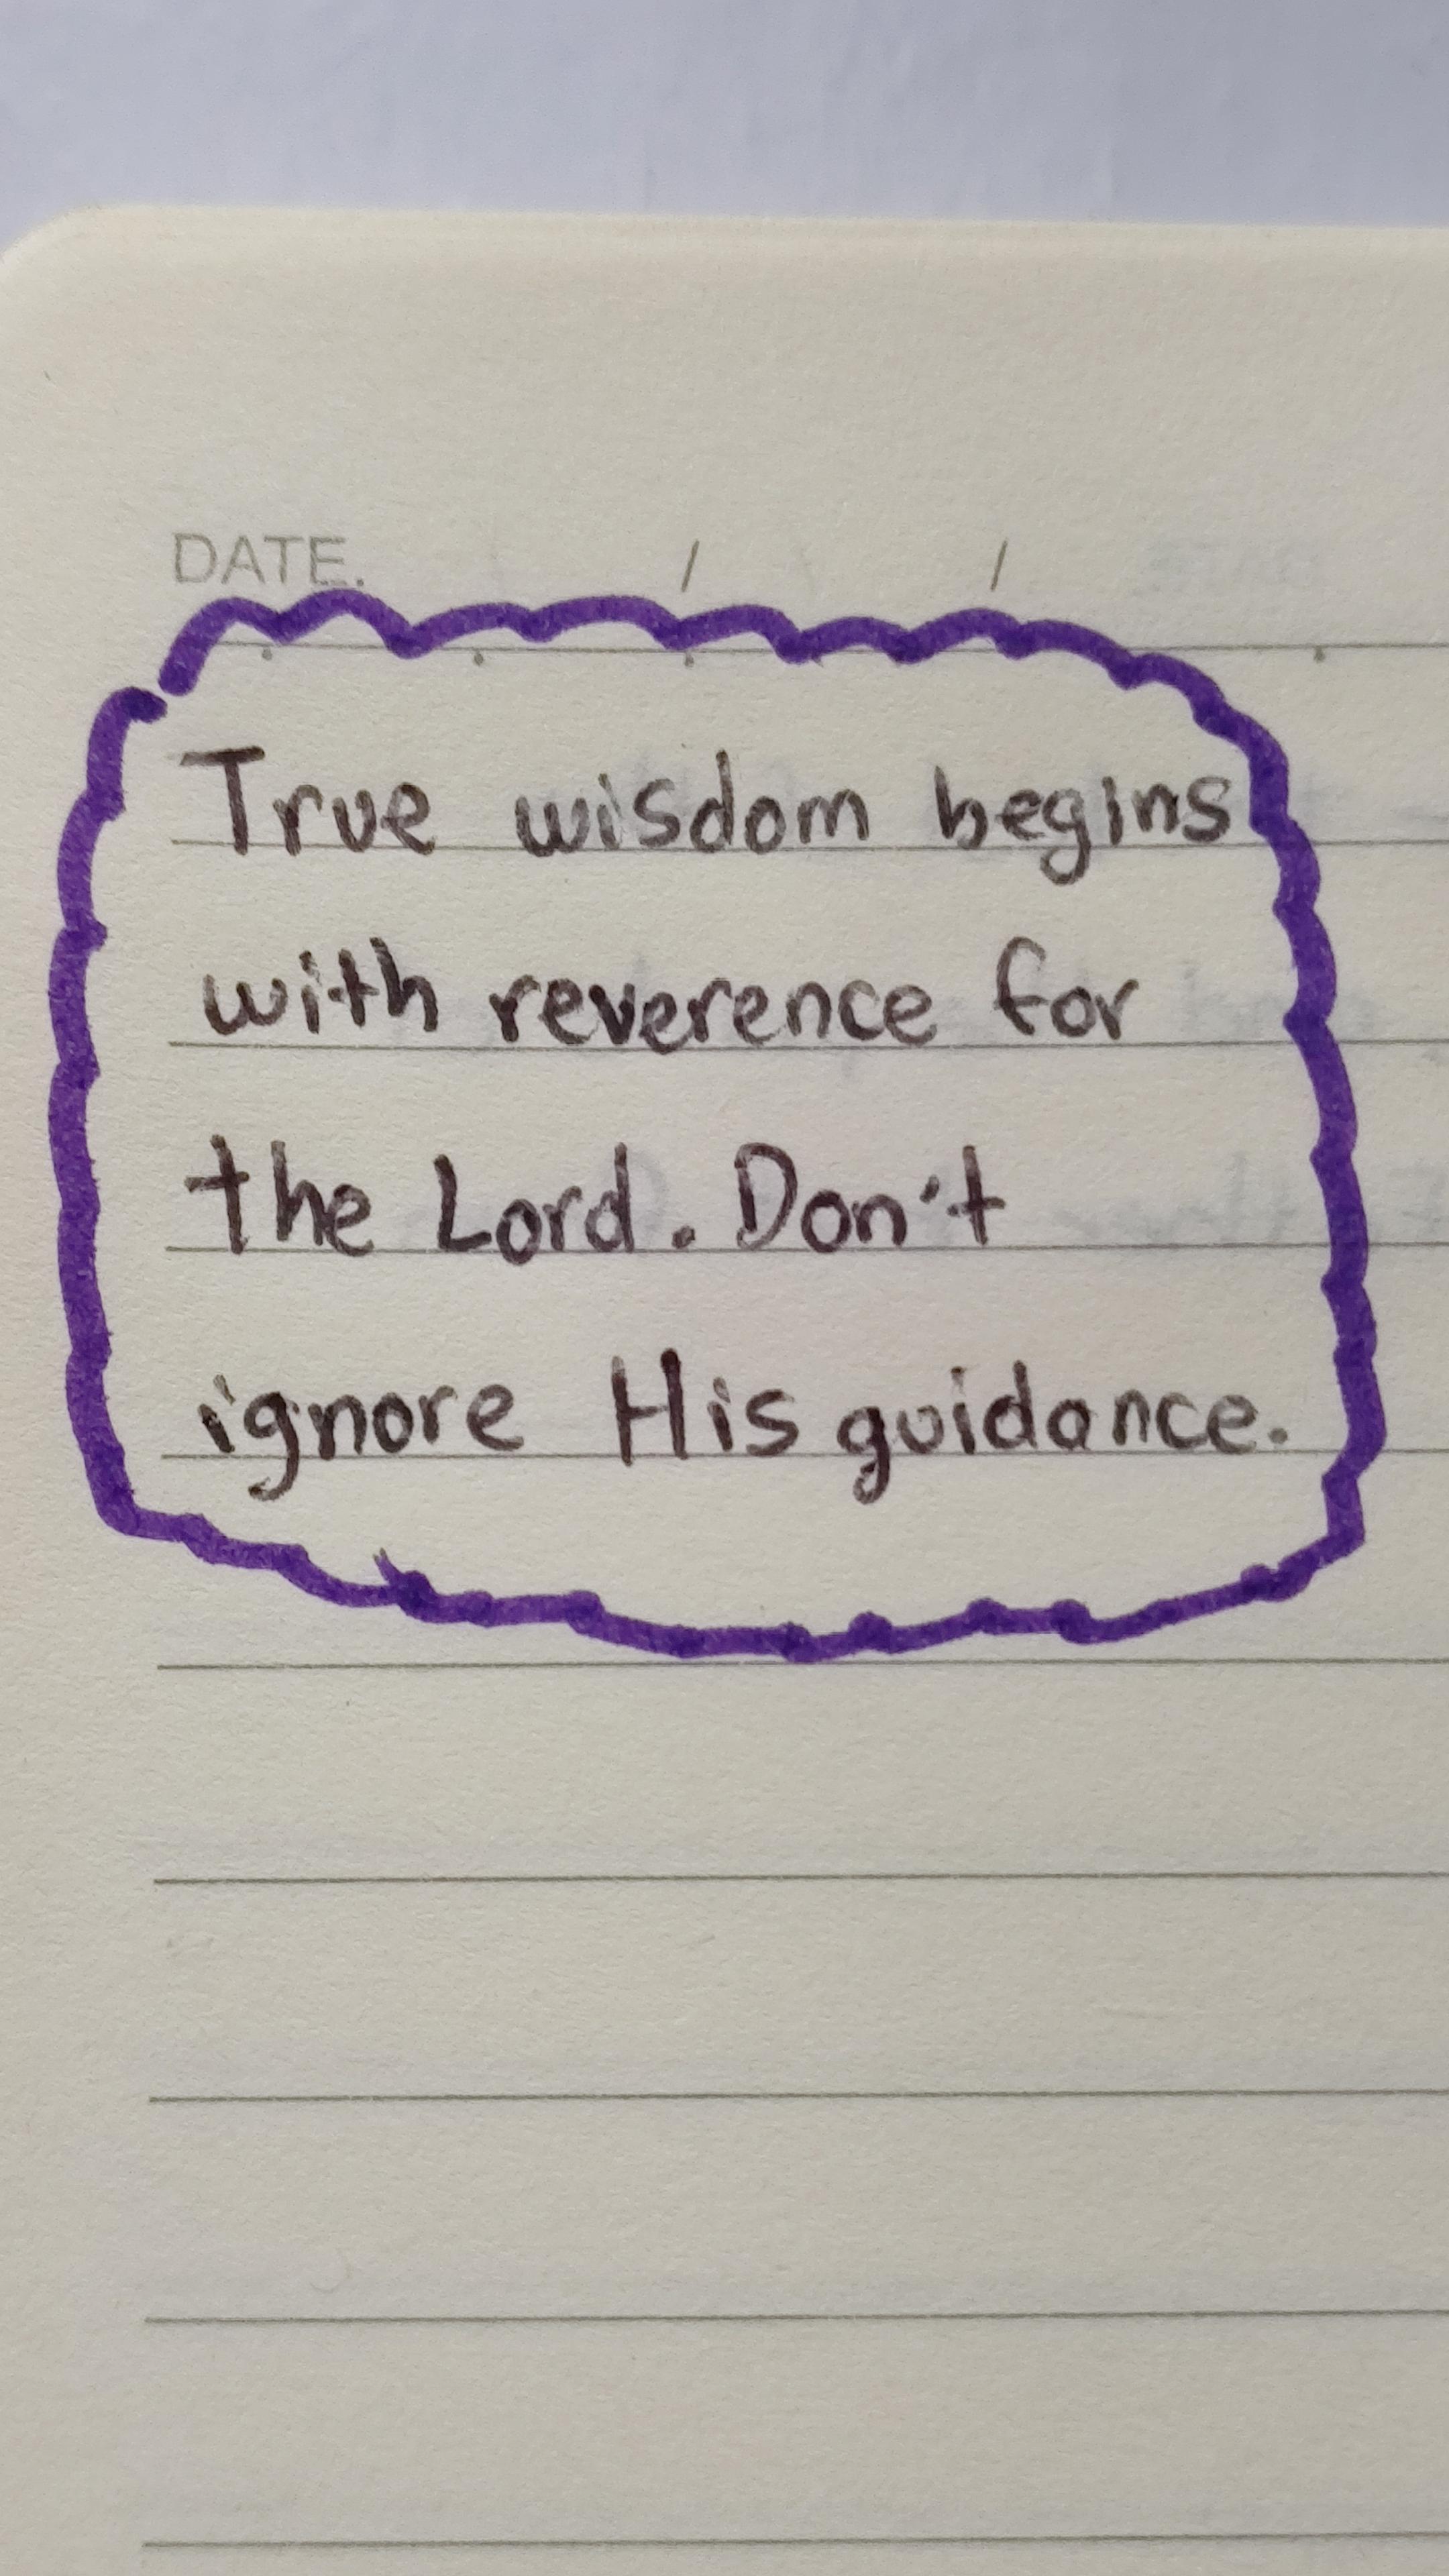 DATE. / /
True wisdom begins
with reverence for
the Lord. Don't
ignore His guidance.